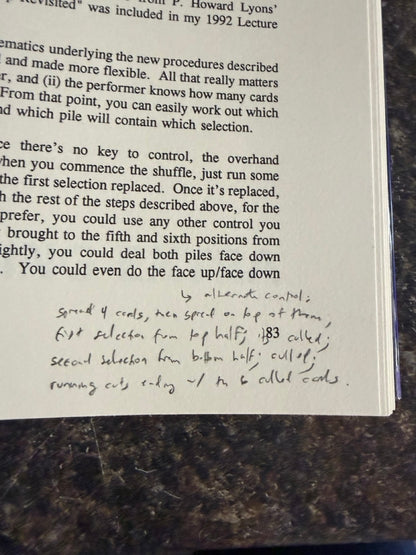 from P. Howard Lyons'
Revisited" was included in my 1992 Lecture
ematics underlying the new procedures described
and made more flexible. All that really matters
r, and (ii) the performer knows how many cards
From that point, you can easily work out which
nd which pile will contain which selection.
ce there's no key to control, the overhand
when you commence the shuffle, just run some
the first selection replaced. Once it's replaced,
h the rest of the steps described above, for the
prefer, you could use any other control you
brought to the fifth and sixth positions from
ightly, you could deal both piles face down
. You could even do the face up/face down
↳ alternate control:
spread 4 cards, then spread on top of them,
first selection from top half; culled;
83
second selection from bottom half; culled;
running cuts ending w/ the 6 culled cards.